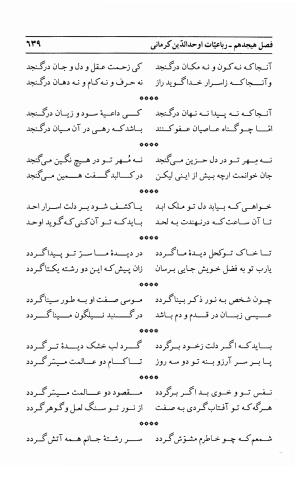 فصل هیجدهم ـ رباعیّات اوحدالدّین کرمانی ۶۳۹
آنجا که نه کون و نه مکان درگنجد کی زحمت عقل و دل و جان درگنجد
وآنجا که ز اسرار خدا گوید راز نه حرف و نه کام و نه دهان درگنجد
****
آنجا که نه پیدا نه نهان درگنجد کی داعیهٔ سود و زیان درگنجد
امّا چو گناه عاصیان عفو کنند باشد که رهی در آن میان درگنجد
****
نه مهر تو در دل حزین می‌گنجد نه مُهر تو در هیچ نگین می‌گنجد
جان خوانمت ارچه بیش از اینی لیکن در کالبد گفت همین می‌گنجد
****
خواهی که بیابد دل تو ملک ابد یا کشف شود بر دلت اسرار احد
تا آن ساعت که درنهندت به لحد باید که تو آن کنی که گوید اوحد
****
تا خاک تو کحل دیدهٔ ما گردد در دیدهٔ ما سرّ تو پیدا گردد
یارب تو به فضل خویش جایی برسان زان پیش که این دو رشته یکتا گردد
****
چون شخص به نور ذکر بینا گردد موسی صفت او به طور سینا گردد
عیسی زبان در قدم و دم باشد در گنبد نیلگون مینا گردد
****
باید که اگر دلت ز خود برگردد گرد لب خشک دیدهٔ تر گردد
پا بر سر آرزو بنه تو دو سه روز تا کام دو عالمت میسّر گردد
****
نفس تو و خوی بد اگر برگردد مقصود دو عالمت میسّر گردد
هرگه که تو آفتاب گردی به صفت از نور تو سنگ لعل و گوهر گردد
****
شمعم که چو خاطرم مشوّش گردد سر رشتهٔ جانم همه آتش گردد